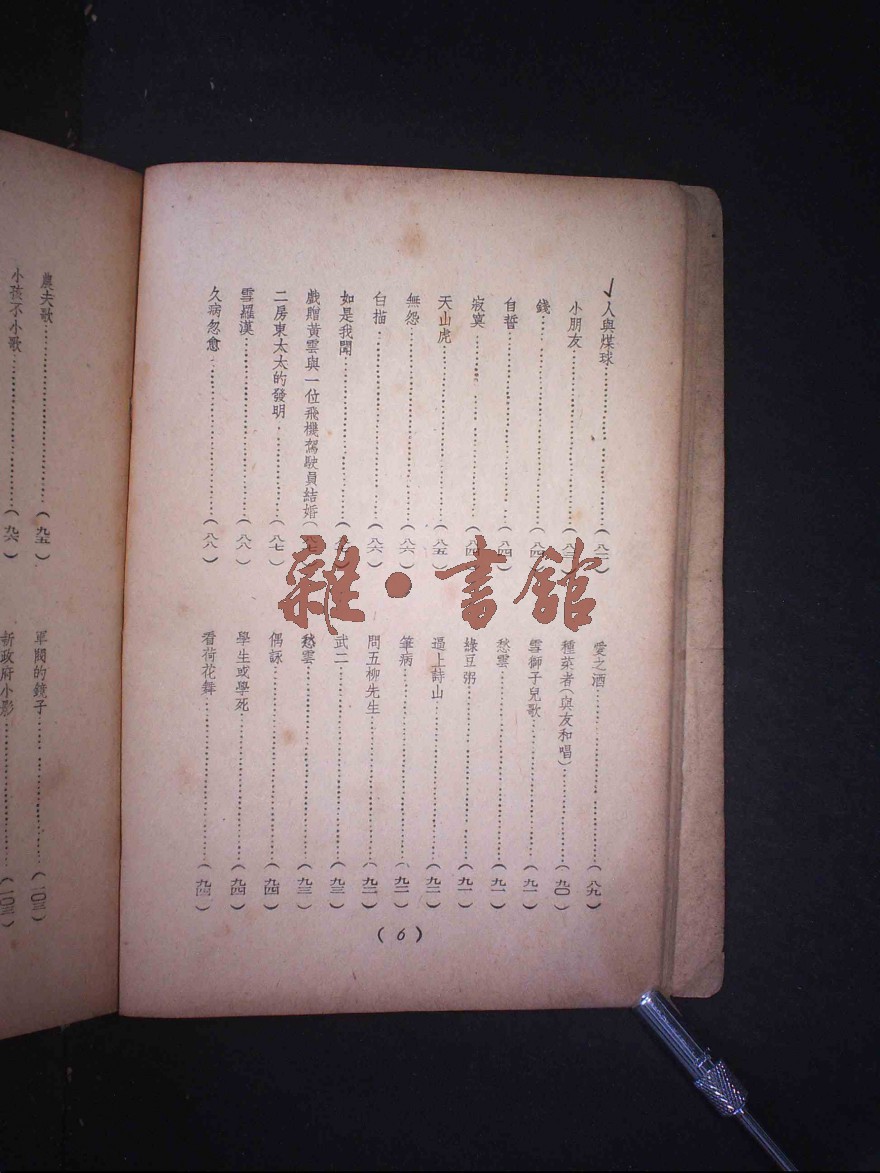 人與煤球……(八二)
小朋友……(八三)
錢……(八四)
自誓……(八四)
寂寞……(八四)
天山虎……(八五)
無怨……(八六)
白描……(八六)
如是我聞……
戲贈黃雲與一位飛機駕駛員結婚(八七)
二房東太太的發明……(八七)
雪羅漢……(八八)
久病忽愈……(八八)
愛之酒……(八九)
種菜者(與友和唱)……(九〇)
雪獅子兒歌……(九一)
愁雲……(九一)
綠豆粥……(九一)
逼上詩山……(九二)
筆病……(九二)
問五柳先生……(九二)
武二……(九三)
愁雲……(九三)
偶詠……(九四)
學生或學死……(九四)
看荷花舞……(九四)
(6)
農夫歌……(九五)
小孩不小歌……(九六)
軍閥的鏡子……(一〇三)
新政府小影……(一〇三)
雜·書館